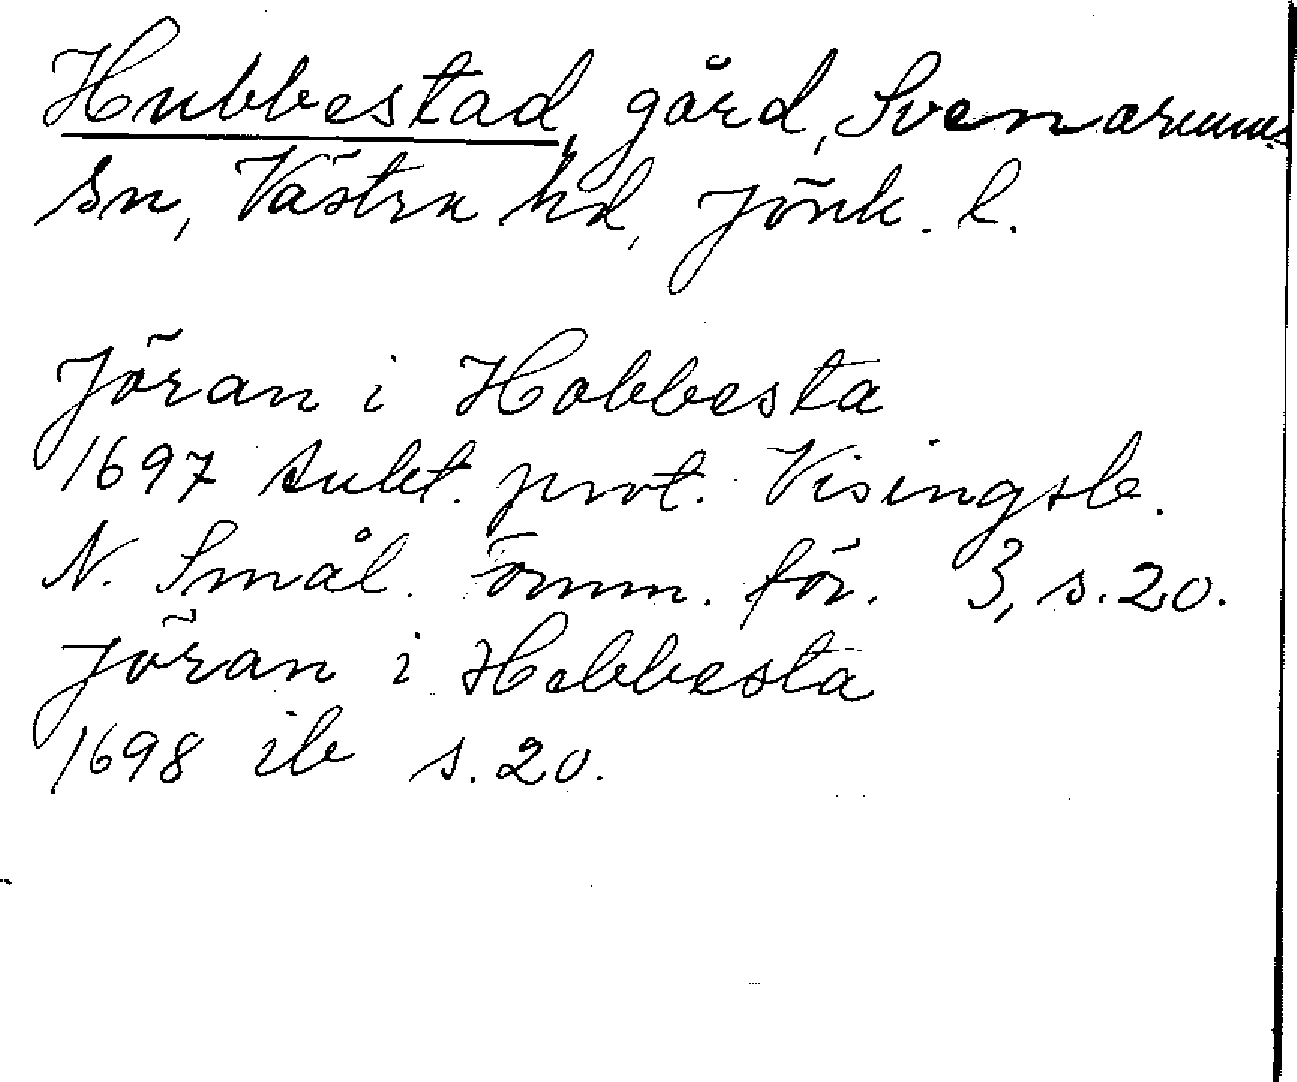 Hubbestad, gård, Svenarums
sn, Västra hd, Jönk. l.
Jöran i Hobbesta
1697 Aukt. prot. Visingsb.
N. Smål. fornm. för. 3, s. 20.
Jöran i Hobbesta
1698 ib s. 20.